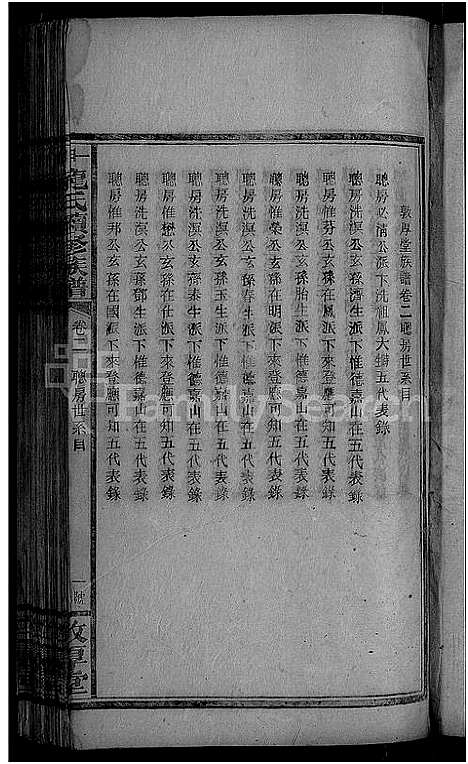 敦厚堂族譜卷二聰房世系目
聰房必清公派下洗祖鳳大
五代表錄
聰房洗溟公玄孫濟生派下惟德嘉山在五代表錄
聰房惟芬公玄孫在鳳派下來登應可知五代表錄
聰房洗溟公玄孫胎生派下惟德嘉山在五代表錄
聰房惟榮公玄孫在明派下來登應可知五代表錄
聰房洗溟公玄孫春生派下惟德嘉山在五代表錄
聰房洗溟公玄孫玉生派下惟德嘉山在五代表錄
聰房洗溟公玄孫泰生派下惟德嘉山在五代表錄
聰房惟楙公玄孫在仕派下來登應可知五代表錄
聰房洗溟公玄孫鄧生派下惟德嘉山在五代表錄
聰房惟邦公玄孫在國派下來登應可知五代表錄
氏續修族譜
卷二
聰房世系目
一號
敦厚堂
FamilySearch